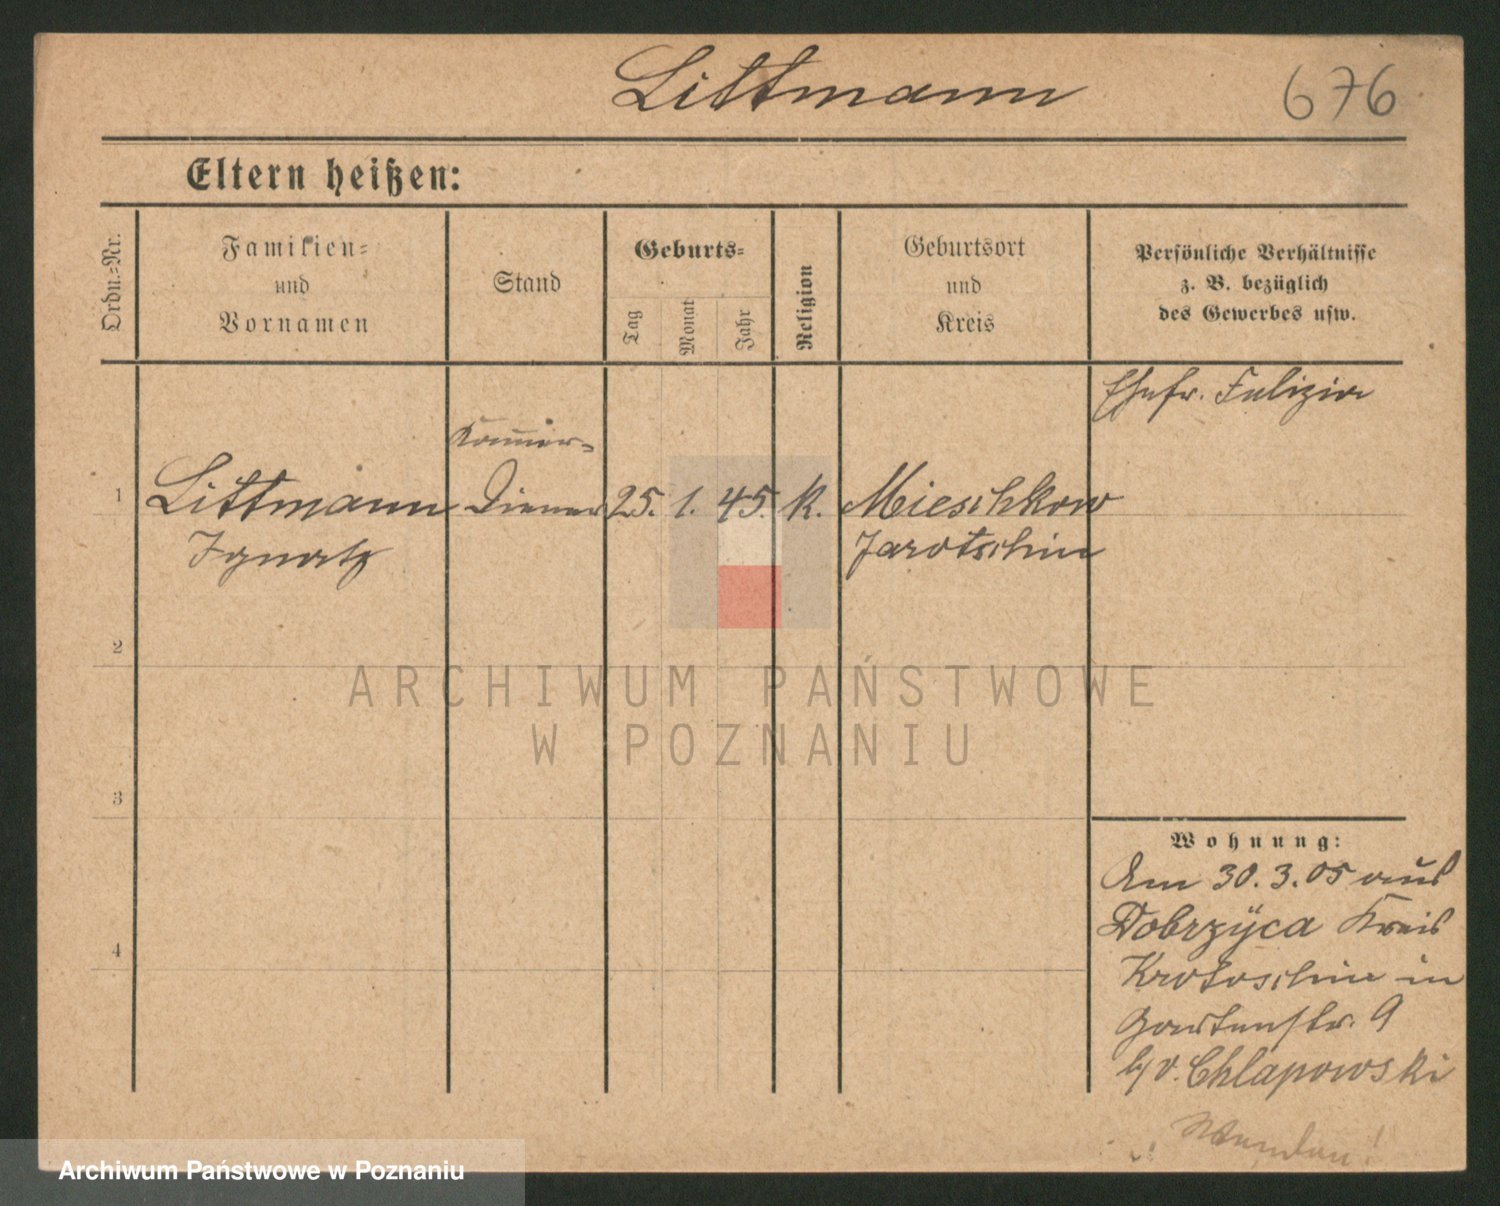 Littmann
676
Eltern heißen:
Ordn.=Nr.
Familien=
und
Vornamen
Stand
Geburts=
Tag
Monat
Jahr
Religion
Geburtsort
und
Kreis
Persönliche Verhältnisse
z. B. bezüglich
des Gewerbes usw.
Ehefr. Felizia
1
Littmann
Ignatz
Diener
25. 1. 45.
K.
Mieschkow
Jarotschin
2
3
4
Wohnung:
Am 30.3.05 aus
Dobrzÿca Kreis
Krotoschin in
Gartenstr. 9
b/ v. Chlapowski
ARCHIWUM PAŃSTWOWE
W POZNANIU
Archiwum Państwowe w Poznaniu